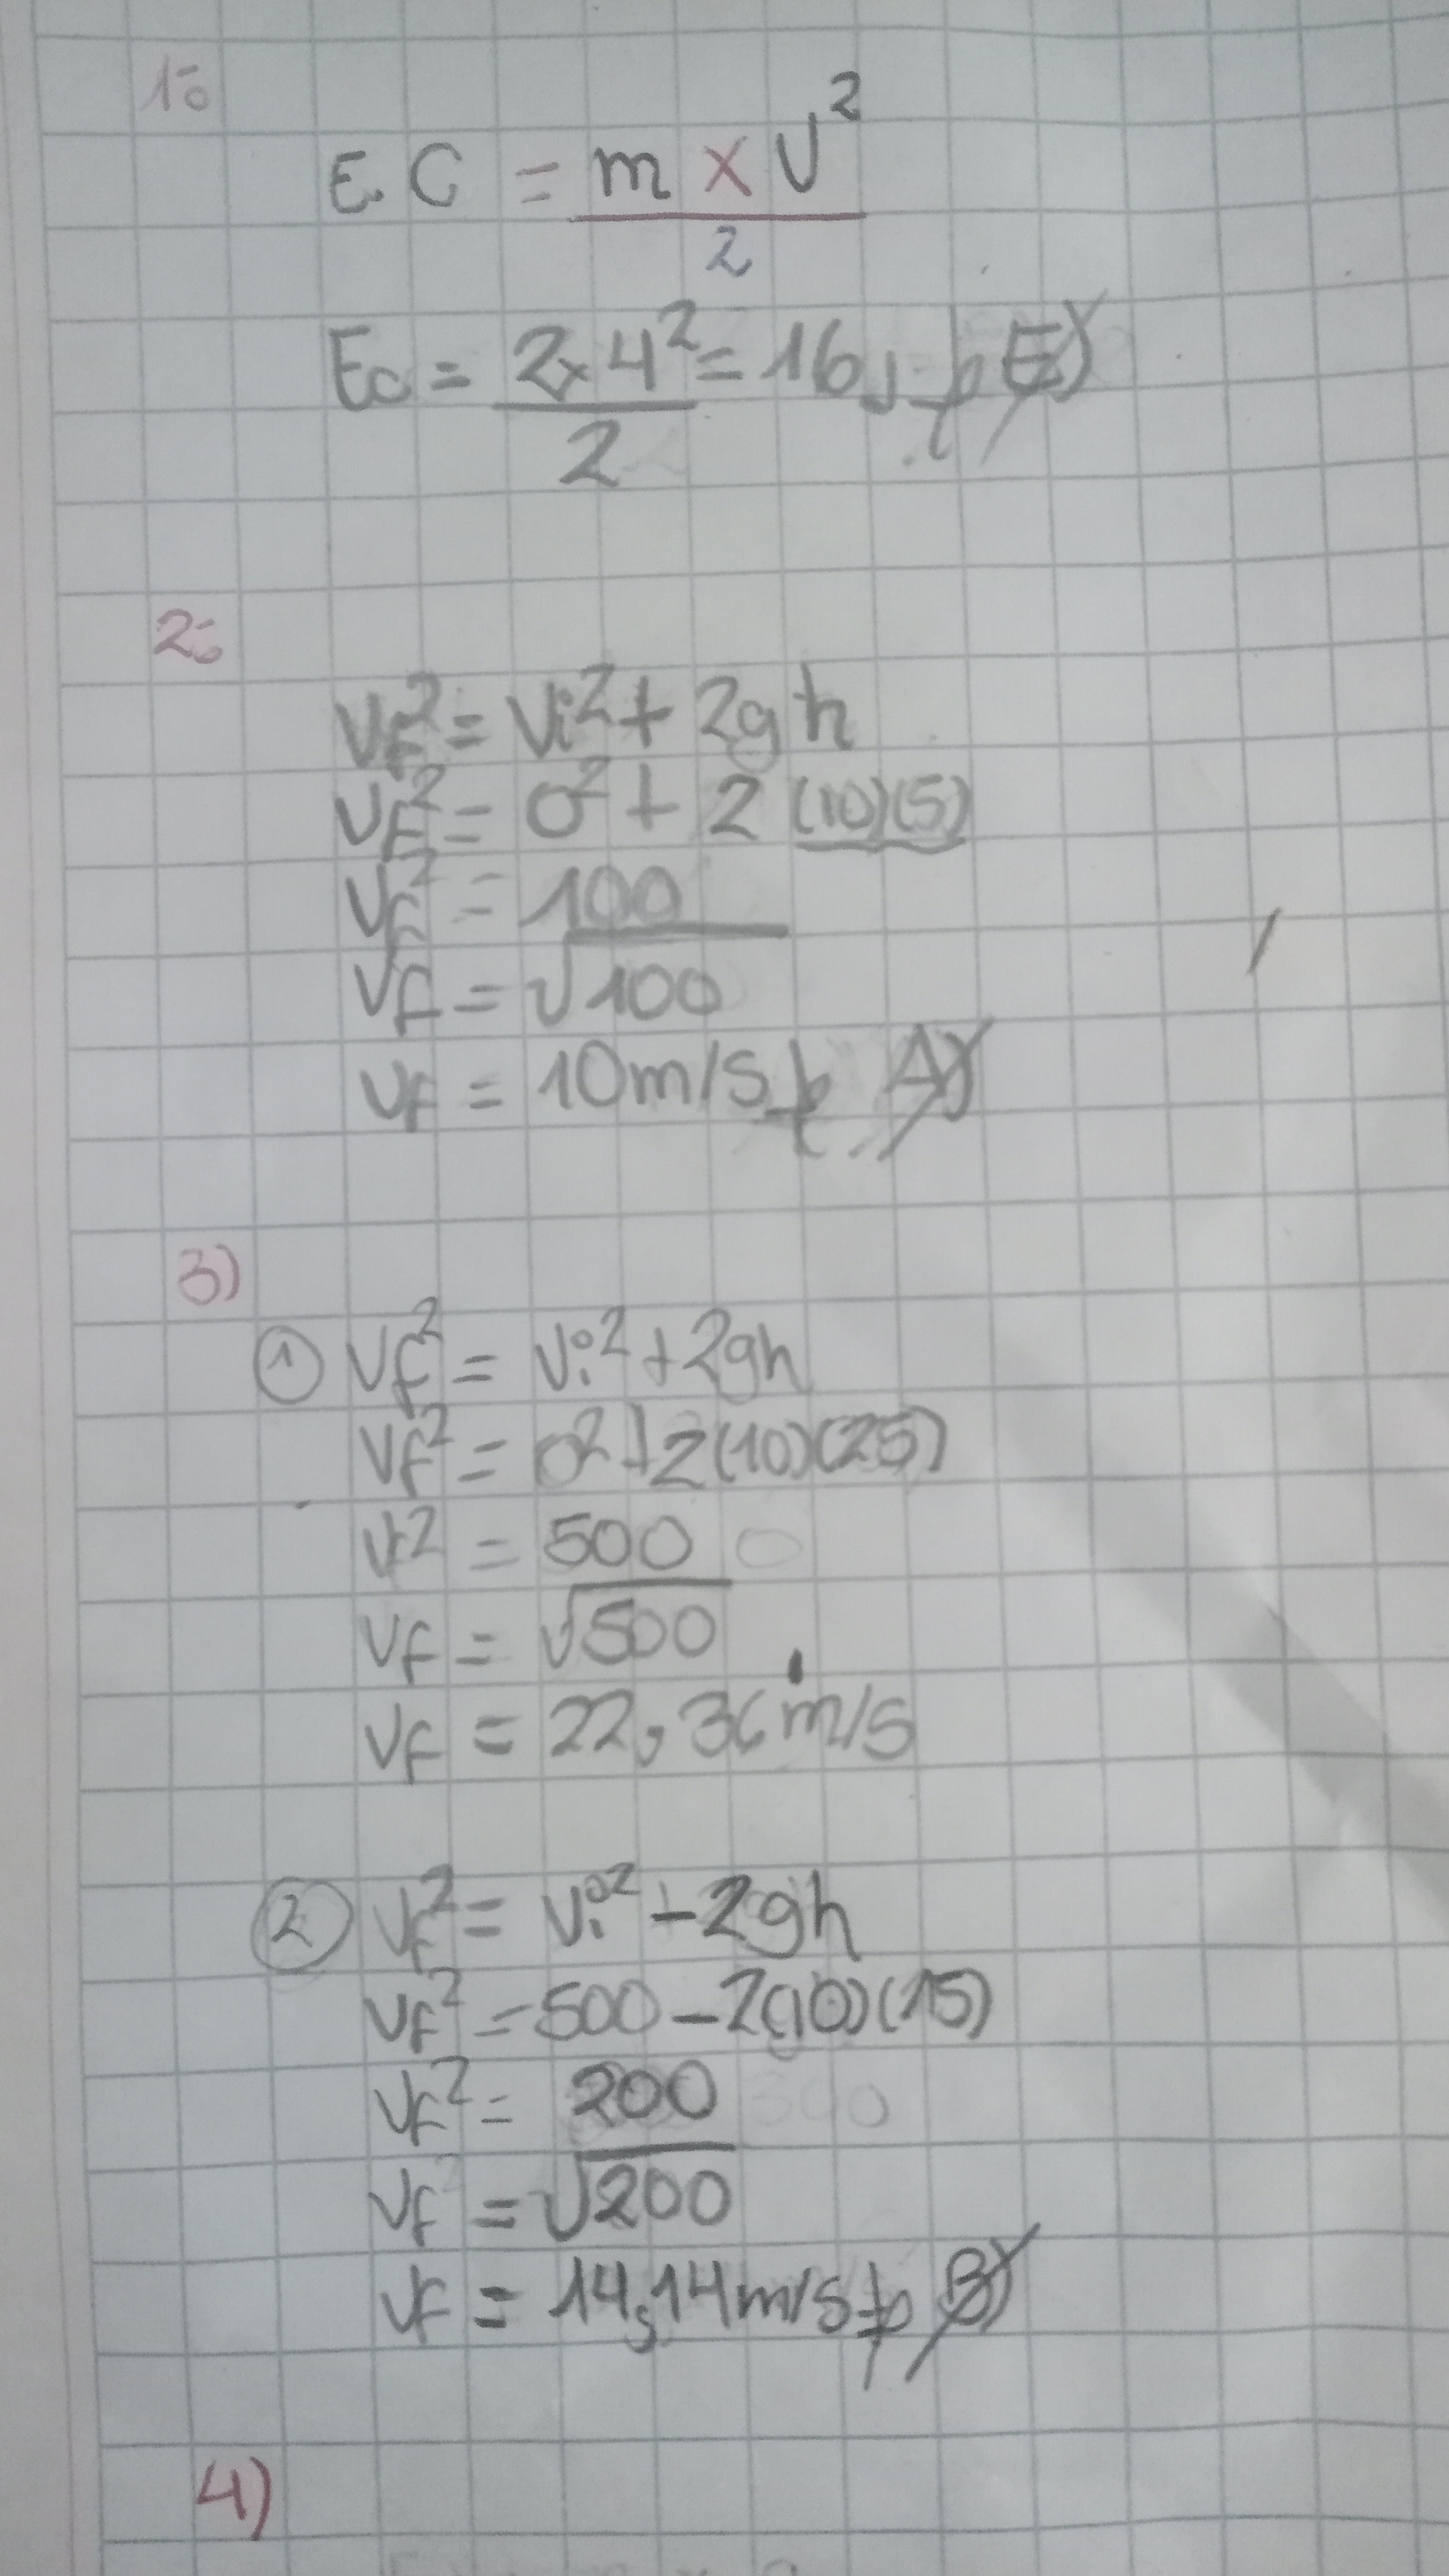 1º
EC = m x V²
2
Ec = 2x4² = 16J E)
2
2º
Vf² = Vi² + 2gh
Vf² = 0² + 2 (10)(5)
Vf² = 100
Vf = √100
Vf = 10m/s A)
3)
① Vf² = Vi² + 2gh
Vf² = 0² + 2(10)(25)
Vf² = 500
Vf = √500
Vf = 22,36 m/s
② Vf² = Vi² - 2gh
Vf² = 500 - 2(10)(15)
Vf² = 200
Vf = √200
Vf = 14,14m/s B)
4)